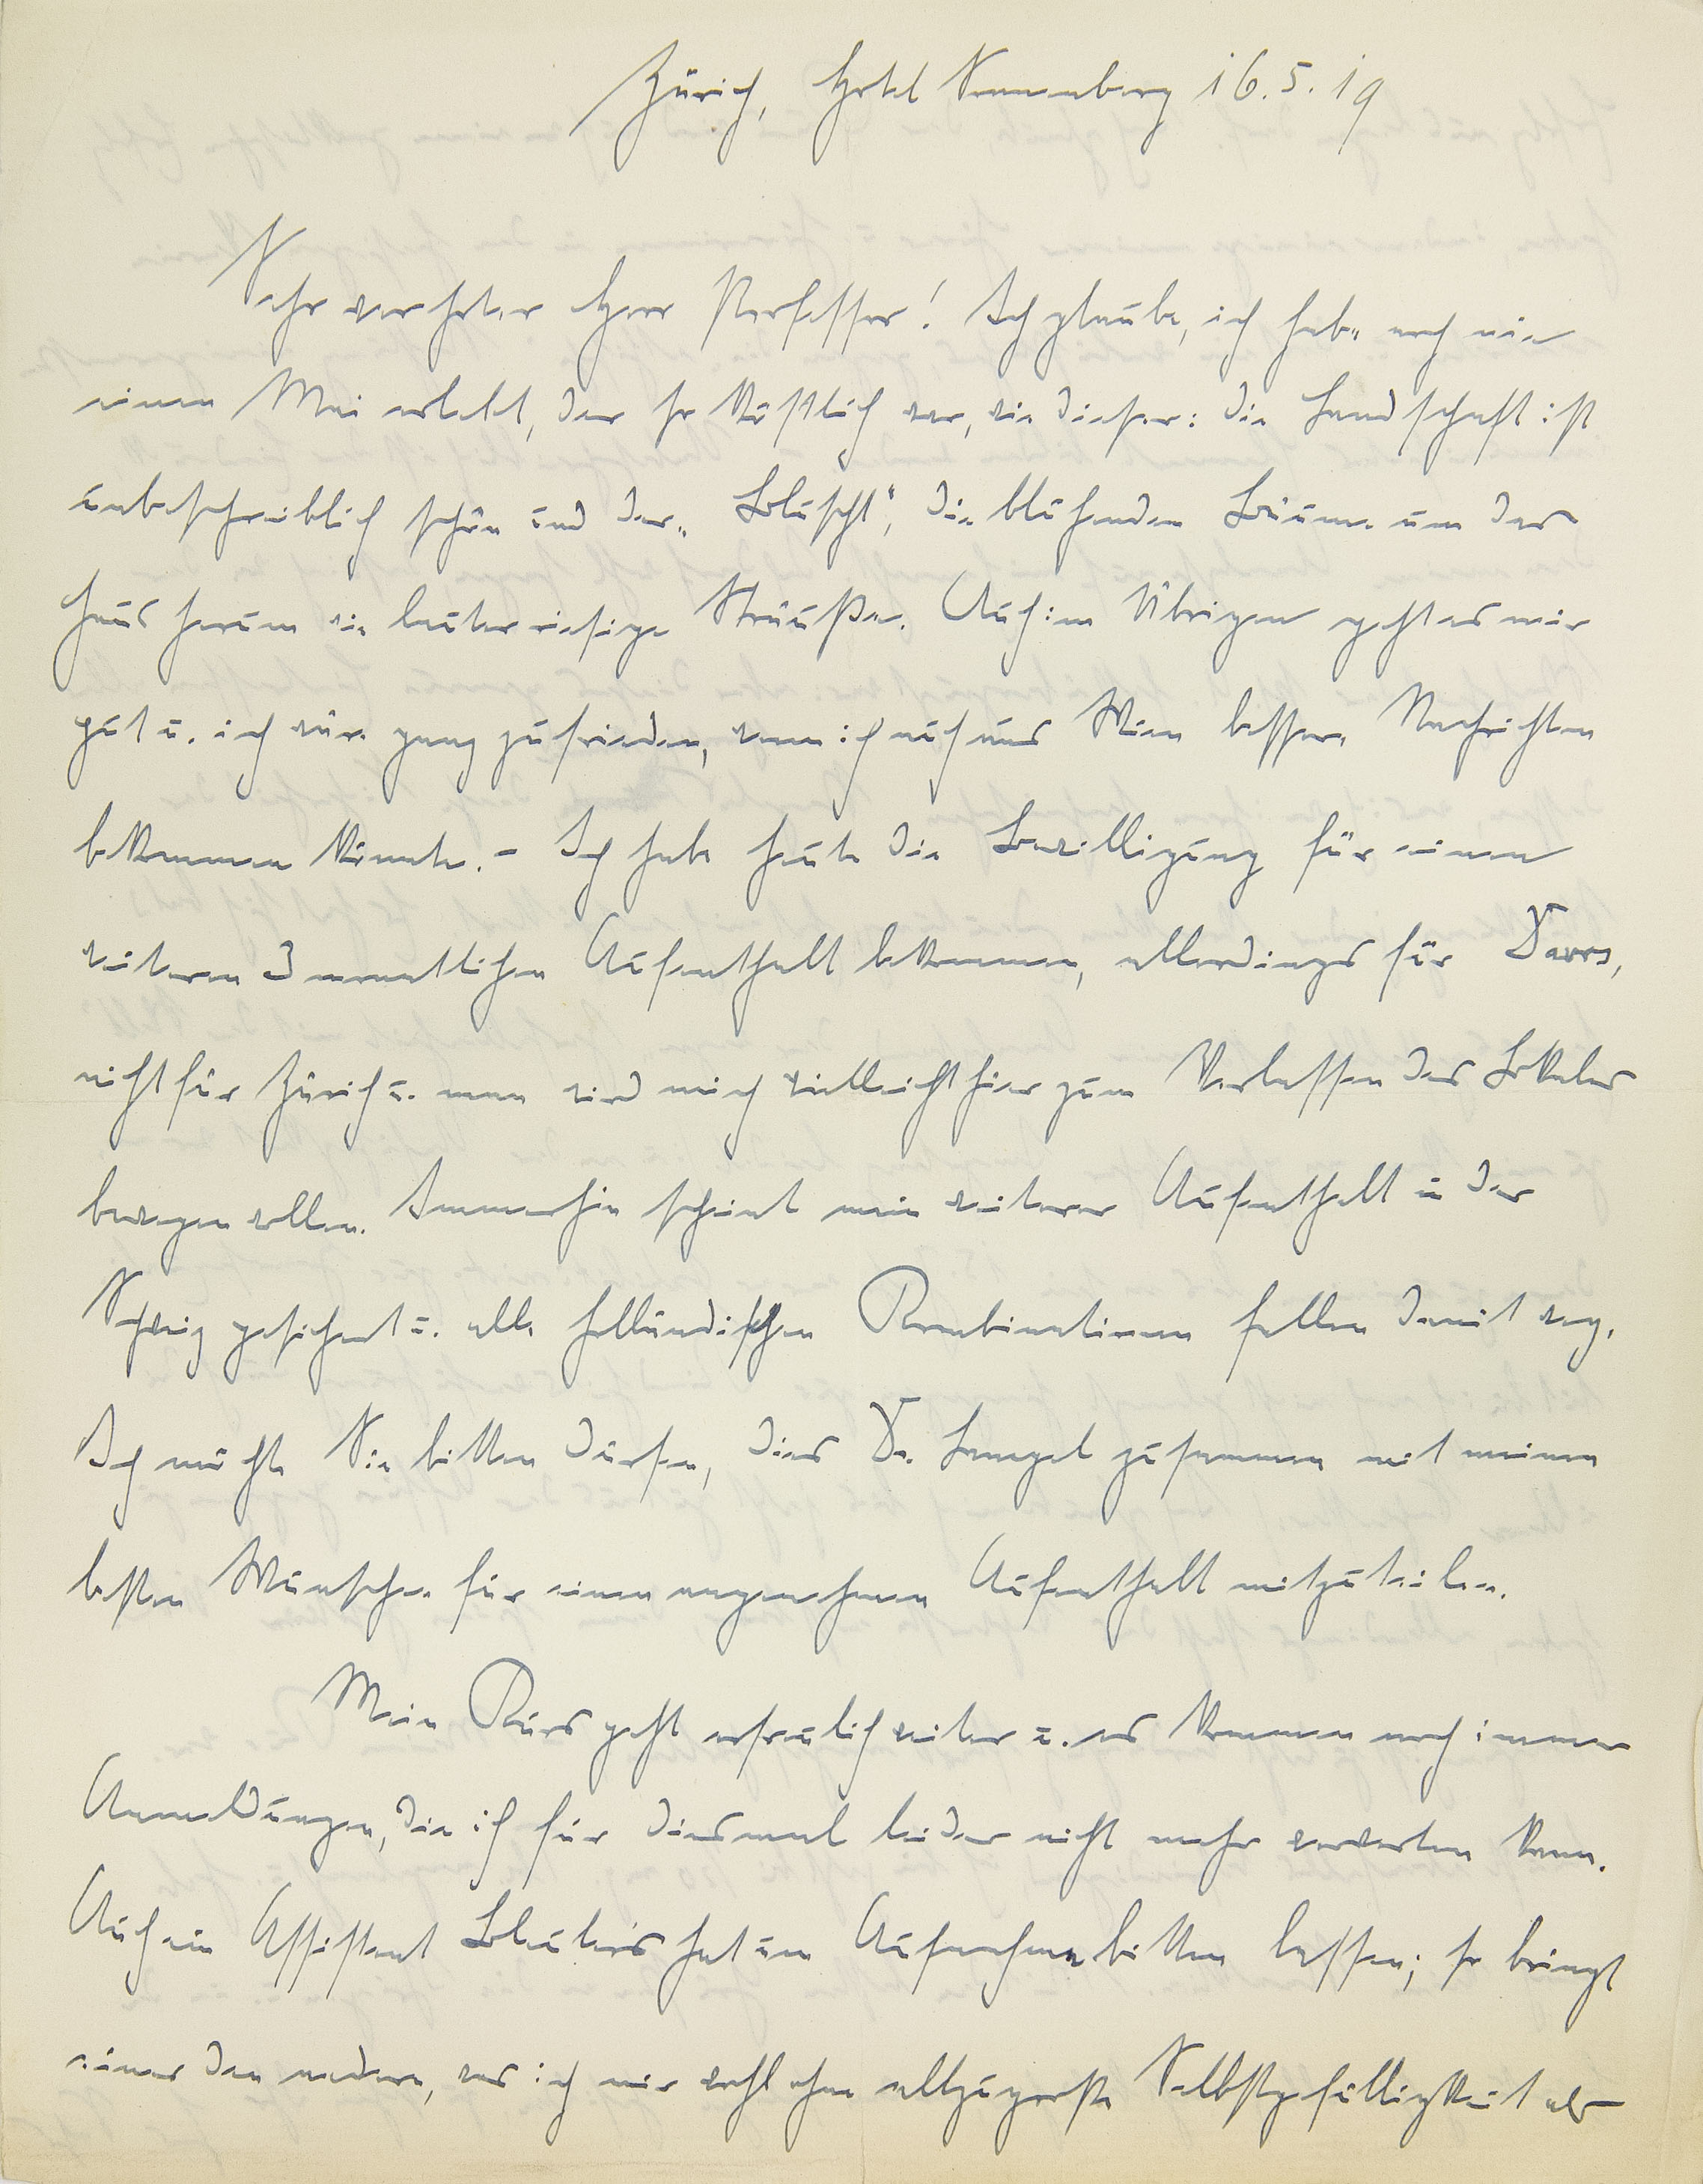 Zürich, Hotel Sonnenberg 16.5.19
Sehr verehrter Herr Professor! Ich glaube, ich habe noch nie
einen Mai erlebt, der so köstlich war, wie dieser: die Landschaft ist
unbeschreiblich schön und der „Blüscht“, die blühenden Bäume um das
Haus herum wie lauter riesige Sträuße. Auch im Übrigen geht es mir
gut u. ich wäre ganz zufrieden, wenn ich auch aus Wien bessere Nachrichten
bekommen könnte. – Ich habe heute die Bewilligung für einen
weiteren 3 monatlichen Aufenthalt bekommen, allerdings für Davos,
nicht für Zürich u. man wird mich vielleicht hier zum Verlassen des Lokales
bewegen wollen. Immerhin scheint mein weiterer Aufenthalt in der
Schweiz gesichert u. alle holländischen Kombinationen fallen damit weg.
Ich möchte Sie bitten dürfen, dies Dr. Lengyel zusammen mit meinen
besten Wünschen für einen angenehmen Aufenthalt mitzuteilen.
Mein Kurs geht erfreulich weiter u. es kommen noch immer
Anmeldungen, die ich für diesmal leider nicht mehr verwerten kann.
Auch ein Assistent Bleuler's hat um Aufnahme bitten lassen; so bringt
einer den andern, was ich mir wohl ohne allzugroße Selbstgefälligkeit als